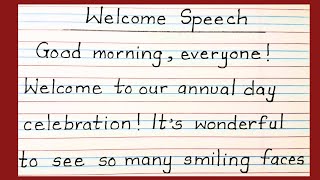 Welcome Speech
Good morning, everyone!
Welcome to our annual day
celebration! It's wonderful
to see so many smiling faces